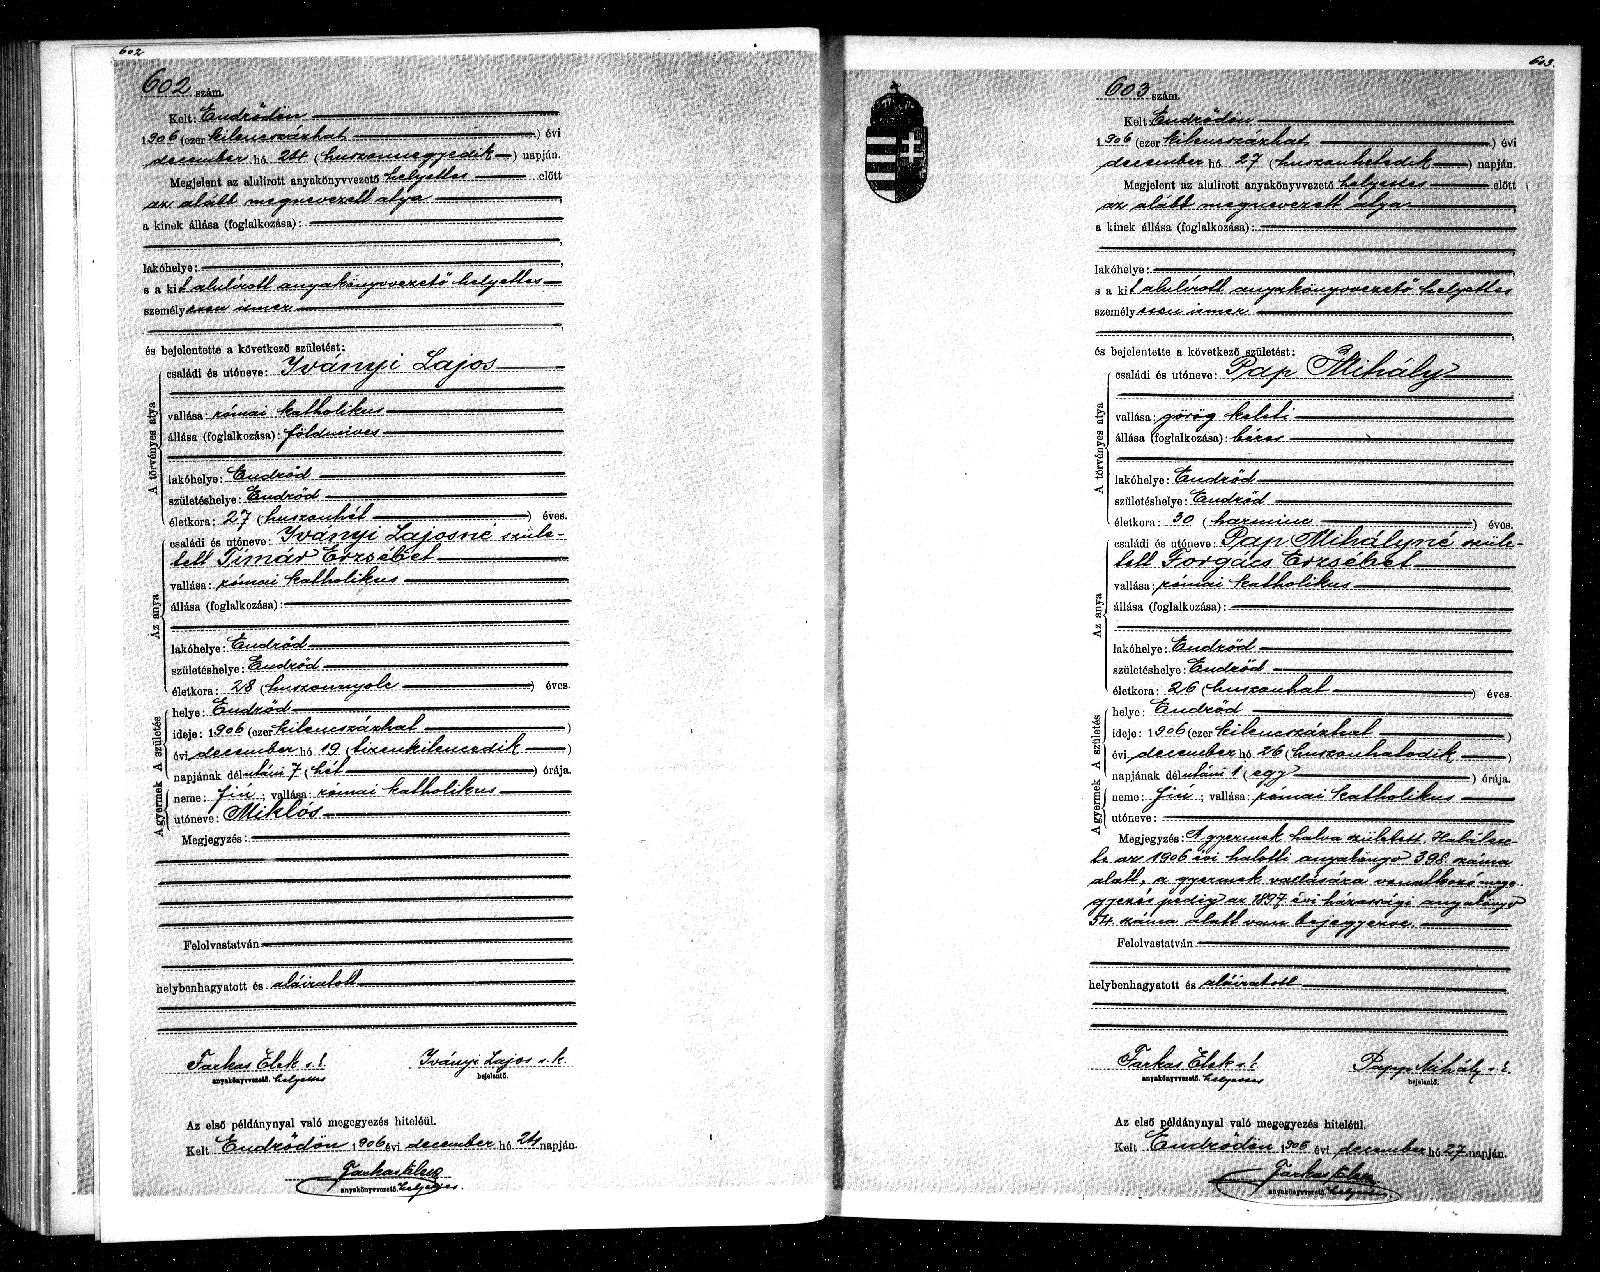 602
602 szám.
Kelt: Endrődön
1906 (ezer kilencszázhat) évi
december hó 24 (huszonnegyedik) napján.
Megjelent az alulirott anyakönyvvezető helyettes előtt
az alább megnevezett atya
a kinek állása (foglalkozása):
lakóhelye:
s a kit alulírott anyakönyvvezető helyettes
személyesen ismer
és bejelentette a következő születést:
A törvényes atya
családi és utóneve: Iványi Lajos
vallása: római katholikus
állása (foglalkozása): földmives
lakóhelye: Endrőd
születéshelye: Endrőd
életkora: 27 (huszonhét) éves.
Az anya
családi és utóneve: Iványi Lajosné szüle-
tett Tímár Erzsébet
vallása: római katholikus
állása (foglalkozása):
lakóhelye: Endrőd
születéshelye: Endrőd
életkora: 28 (huszonnyolc) éves.
A születés
helye: Endrőd
ideje: 1906 (ezer kilencszázhat)
évi december hó 19 (tizenkilencedik)
napjának délutáni 7 (hét) órája.
A gyermek
neme: fiú; vallása: római katholikus
utóneve: Miklós
Megjegyzés:
Felolvastatván
helybenhagyatott és aláiratott
Farkas Elek s. k. Iványi Lajos s. k.
anyakönyvvezető helyettes bejelentő.
Az első példánynyal való megegyezés hiteléül.
Kelt Endrődön 1906 évi december hó 24 napján.
Farkas Elek
anyakönyvvezető helyettes.
603
603 szám.
Kelt: Endrődön
1906 (ezer kilencszázhat) évi
december hó 27 (huszonhetedik) napján.
Megjelent az alulirott anyakönyvvezető helyettes előtt
az alább megnevezett atya
a kinek állása (foglalkozása):
lakóhelye:
s a kit alulírott anyakönyvvezető helyettes
személyesen ismer
és bejelentette a következő születést:
A törvényes atya
családi és utóneve: Pap Mihály
vallása: görög keleti
állása (foglalkozása): béres
lakóhelye: Endrőd
születéshelye: Endrőd
életkora: 30 (harminc) éves.
Az anya
családi és utóneve: Pap Mihályné szüle-
tett Forgács Erzsébet
vallása: római katholikus
állása (foglalkozása):
lakóhelye: Endrőd
születéshelye: Endrőd
életkora: 26 (huszonhat) éves.
A születés
helye: Endrőd
ideje: 1906 (ezer kilencszázhat)
évi december hó 26 (huszonhatodik)
napjának délutáni 1 (egy) órája.
A gyermek
neme: fiú; vallása: római katholikus
utóneve:
Megjegyzés: A gyermek halva született. Halálese-
te az 1906 évi halotti anyakönyv 398 száma
alatt, a gyermek vallására vonatkozó meg-
gyezés pedig az 1897 évi házassági anyakönyv
54 száma alatt van bejegyezve.
Felolvastatván
helybenhagyatott és aláiratott
Farkas Elek s. k. Papp Mihály s. k.
anyakönyvvezető helyettes bejelentő.
Az első példánynyal való megegyezés hiteléül.
Kelt Endrődön 1906 évi december hó 27 napján.
Farkas Elek
anyakönyvvezető helyettes.